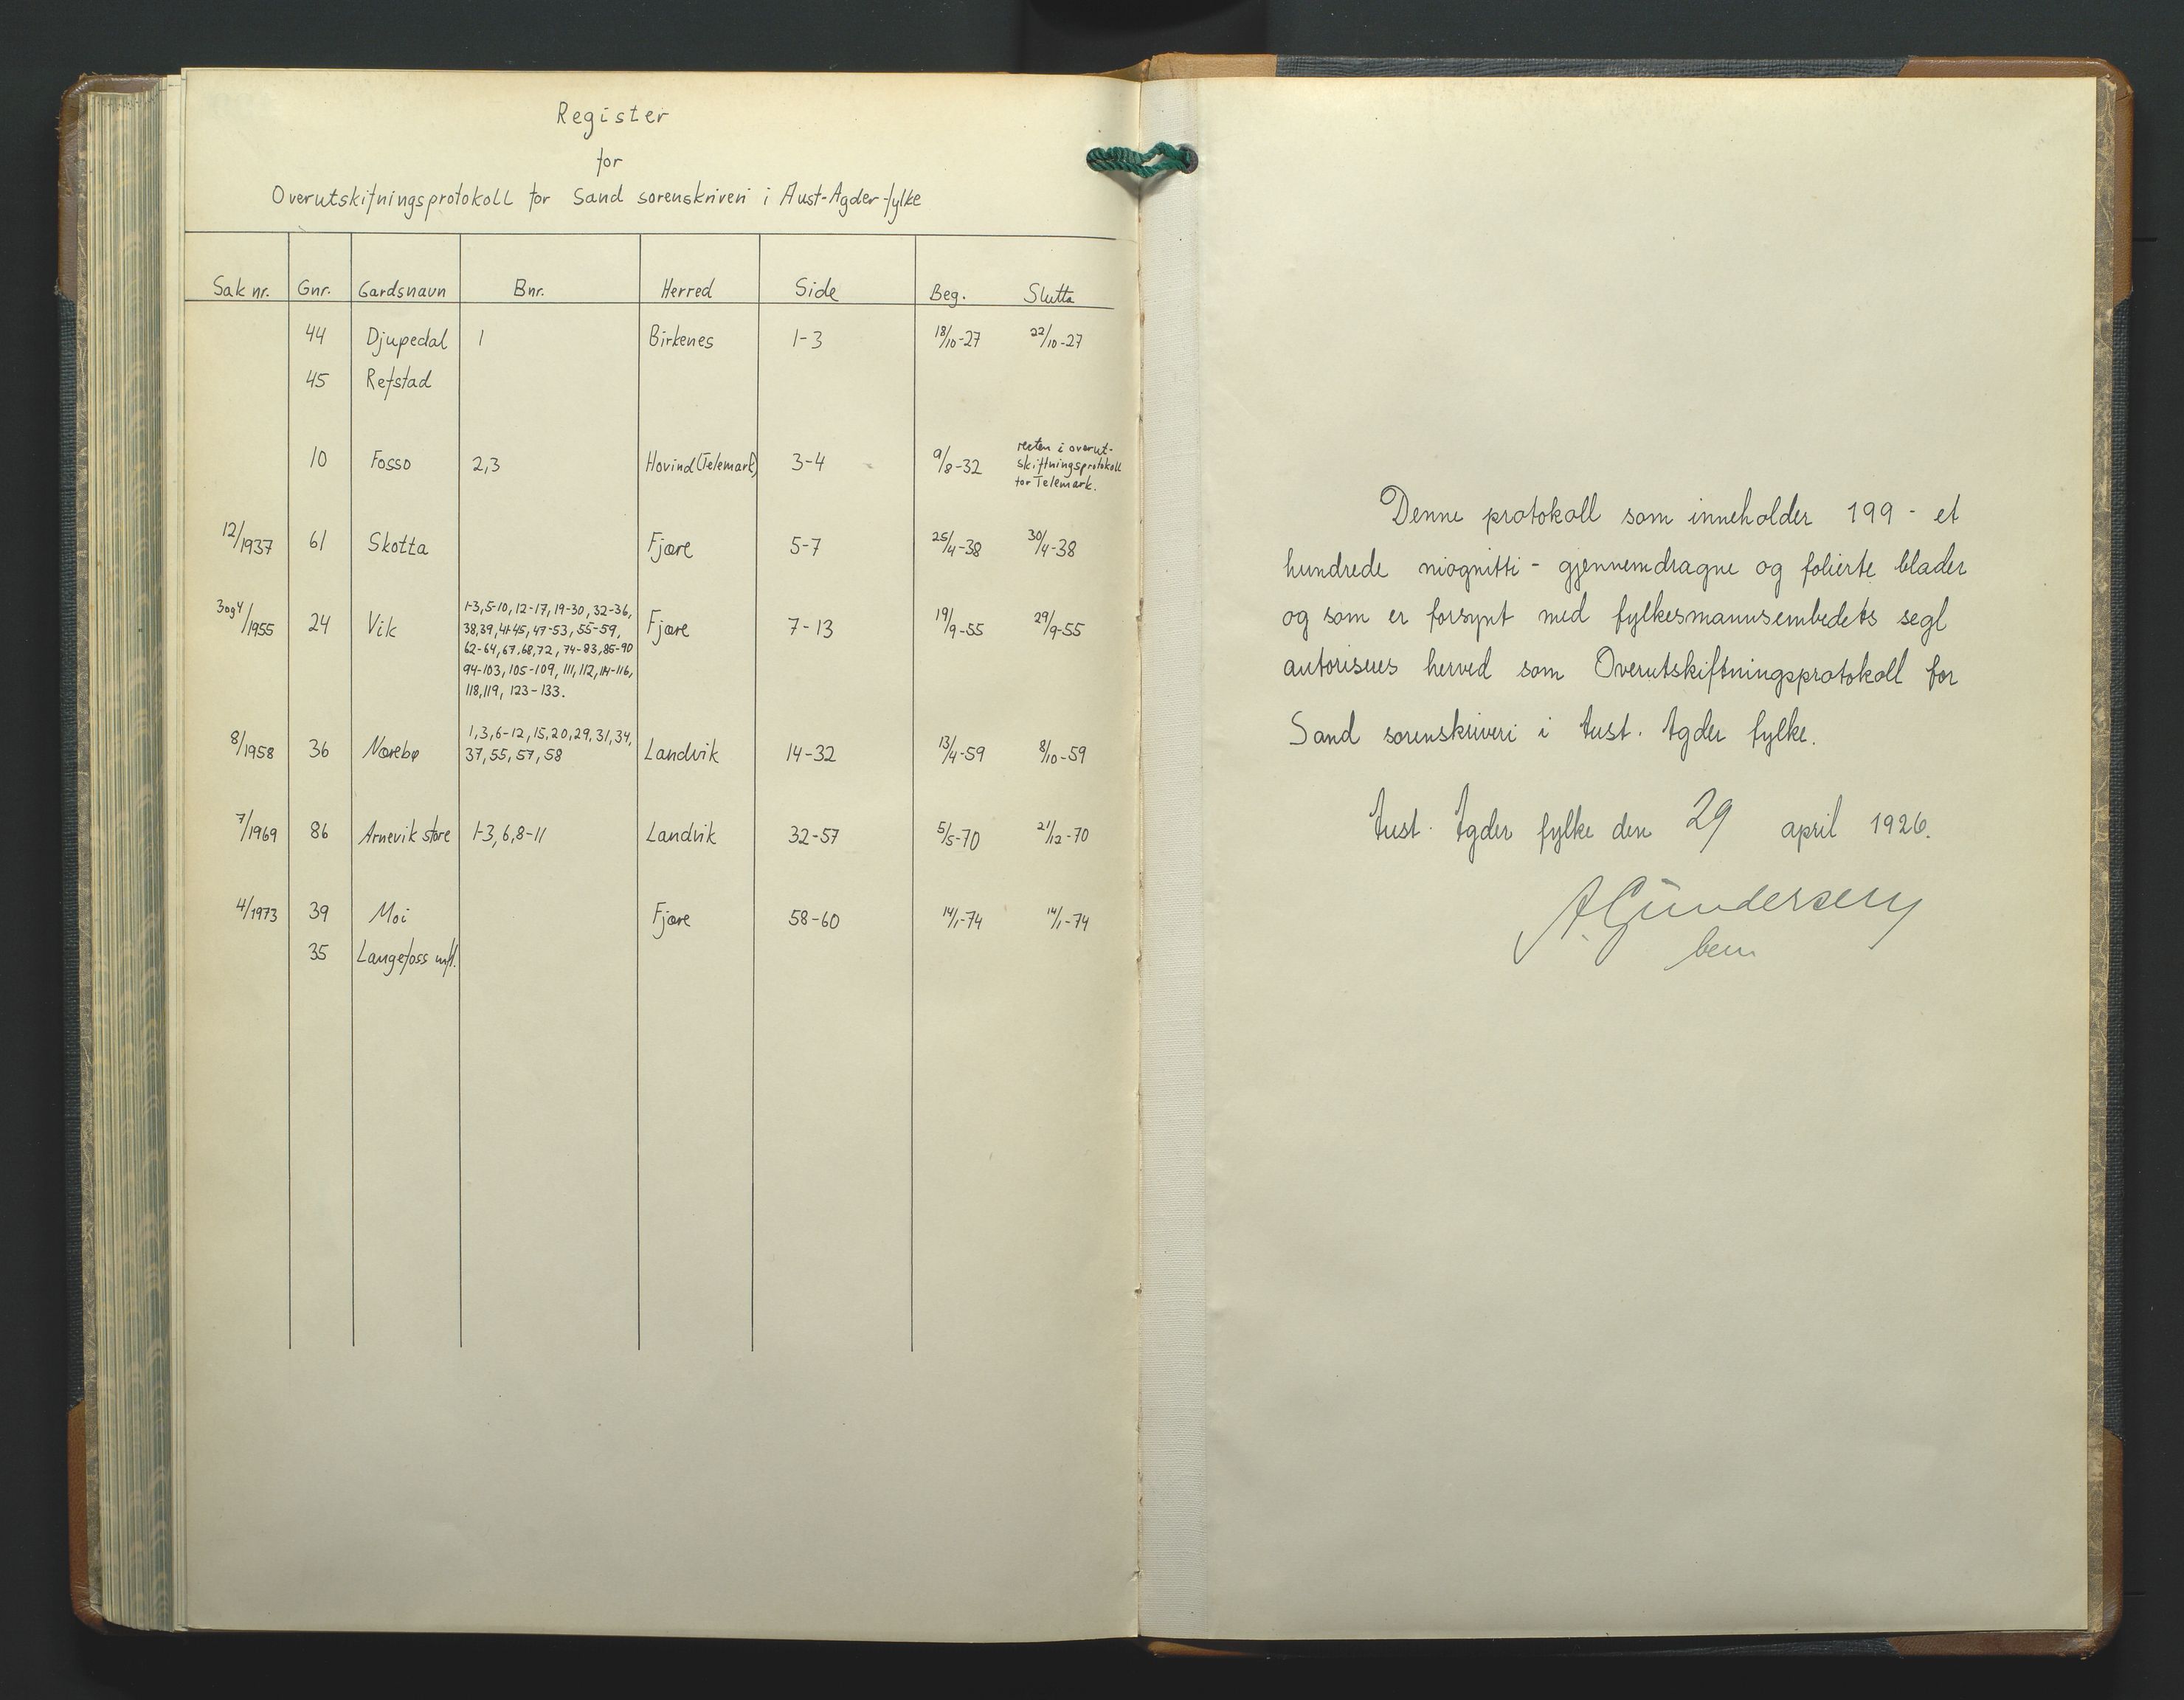 Register
for
Overutskiftningsprotokoll for Sand sorenskriveri i Aust-Agder fylke
Sak nr. Gnr. Gardsnavn Bnr. Herred Side Beg. Slutta
44 Djupedal 1 Birkenes 1-3 18/10-27 22/10-27
45 Refstad
10 Fosso 2,3 Hovind (Telemark) 3-4 9/8-32 resten i overut-
skiftningsprotokoll
for Telemark.
12/1937 61 Skotta Fjære 5-7 25/4-38 30/4-38
3og4/1955 24 Vik 1-3, 5-10, 12-17, 19-30, 32-36, Fjære 7-13 19/9-55 29/9-55
38,39, 41-45, 47-53, 55-59,
62-64, 67, 68, 72, 74-83, 85-90
94-103, 105-109, 111, 112, 114-116,
118, 119, 123-133.
8/1958 36 Nærebø 1, 3, 6-12, 15, 20, 29, 31, 34, Landvik 14-32 13/4-59 8/10-59
37, 55, 57, 58
7/1969 86 Arnevik store 1-3, 6, 8-11 Landvik 32-57 5/5-70 21/12-70
4/1973 39 Moi Fjære 58-60 14/1-74 14/1-74
35 Langefoss m/fl.
Denne protokoll som inneholder 199 - et
hundrede niognitti - gjennemdragne og folierte blader
og som er forsynt med fylkesmannsembedets segl
autoriseres herved som Overutskiftningsprotokoll for
Sand sorenskriveri i Aust-Agder fylke.
Aust-Agder fylke den 29 april 1926.
A Gundersen
bem